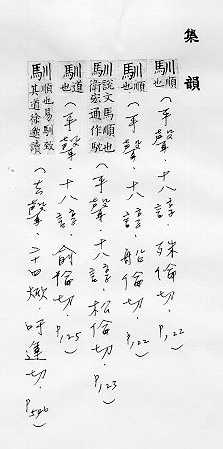 集韻
馴順也（平聲．十八諄．殊倫切．P,122）
馴順也（平聲．十八諄．船倫切．P,122）
馴說文馬順也衛宏通作（平聲．十八諄．松倫切．P,123）
馴道也（平聲．十八諄．俞倫切．P,125）
馴順也易馴致其道徐邈讀（去聲．二十四焮．吁運切．P,546）